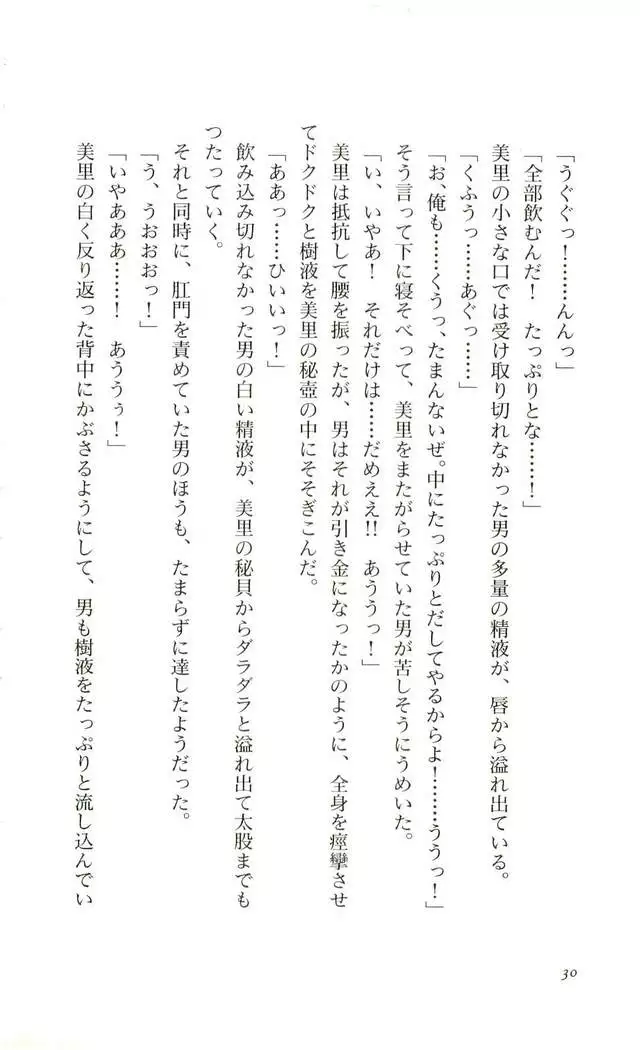 「うぐぐっ！……んんっ」
「全部飲むんだ！　たっぷりとな……！」
美里の小さな口では受け取り切れなかった男の多量の精液が、唇から溢れ出ている。
「くふうっ……あぐっ……」
「お、俺も……くうっ、たまんないぜ。中にたっぷりとだしてやるからよ！……ううっ！」
そう言って下に寝そべって、美里をまたがらせていた男が苦しそうにうめいた。
「い、いやあ！　それだけは……だめええ!!　あううっ！」
美里は抵抗して腰を振ったが、男はそれが引き金になったかのように、全身を痙攣させ
てドクドクと樹液を美里の秘壺の中にそそぎこんだ。
「ああっ……ひいいっ！」
飲み込み切れなかった男の白い精液が、美里の秘貝からダラダラと溢れ出て太股までも
つたっていく。
それと同時に、肛門を責めていた男のほうも、たまらずに達したようだった。
「う、うおおおっ！」
「いやあああ……！　あううぅ！」
美里の白く反り返った背中にかぶさるようにして、男も樹液をたっぷりと流し込んでい
30